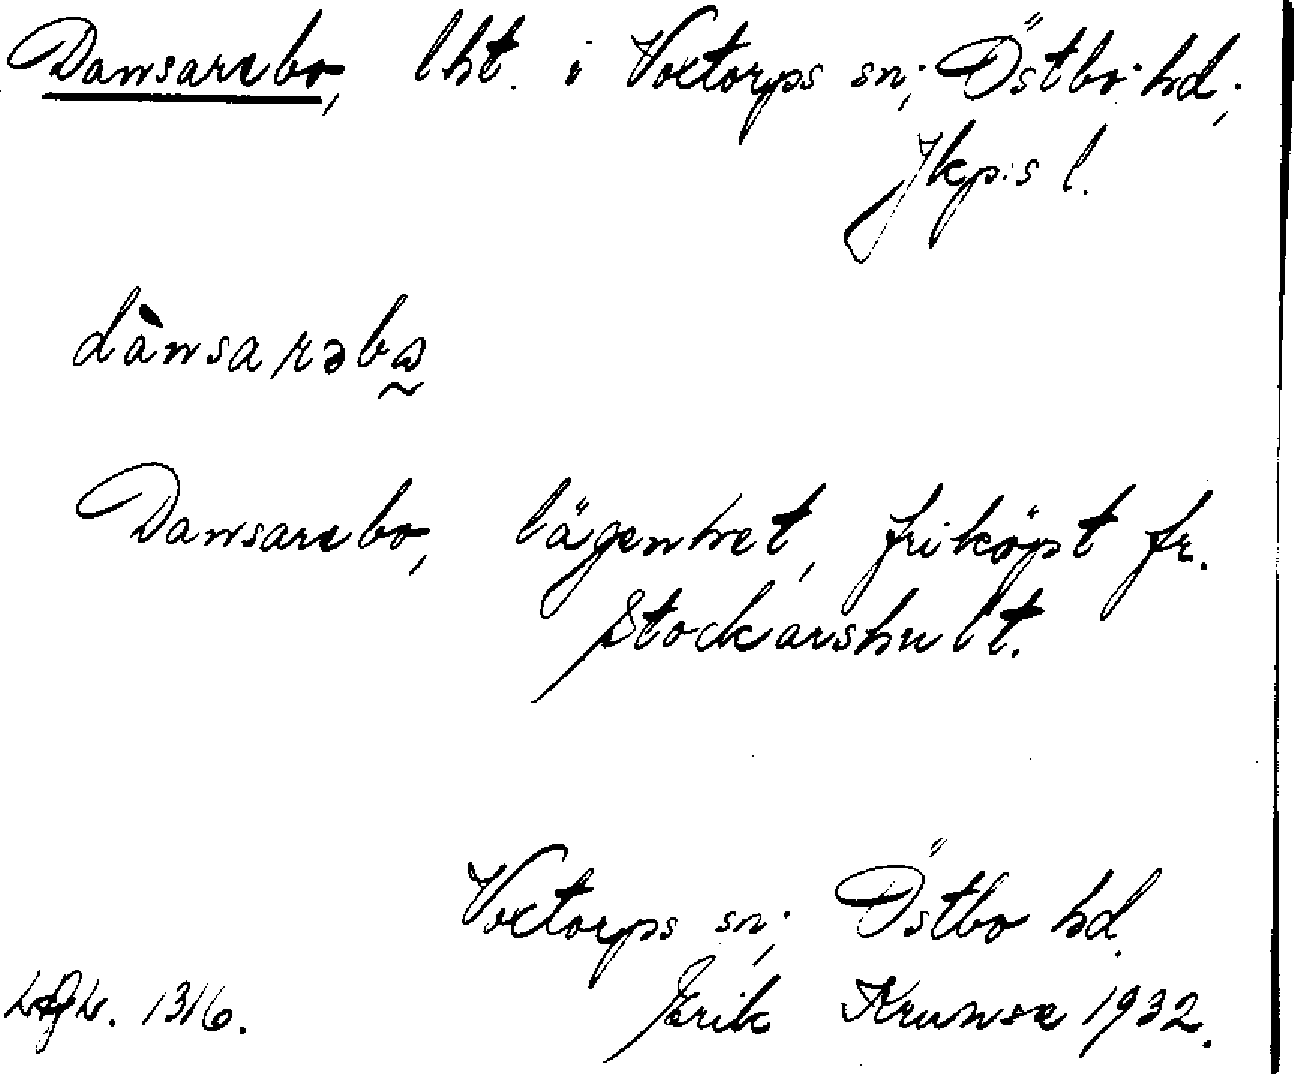 Dansarebo, lht. i Voxtorps sn; Östbo hd;
Jkp:s l.
dànsarəbω
Dansarebo, lägenhet, friköpt fr.
Stockarshult.
Voxtorps sn; Östbo hd.
1316. Erik Krunse 1932.